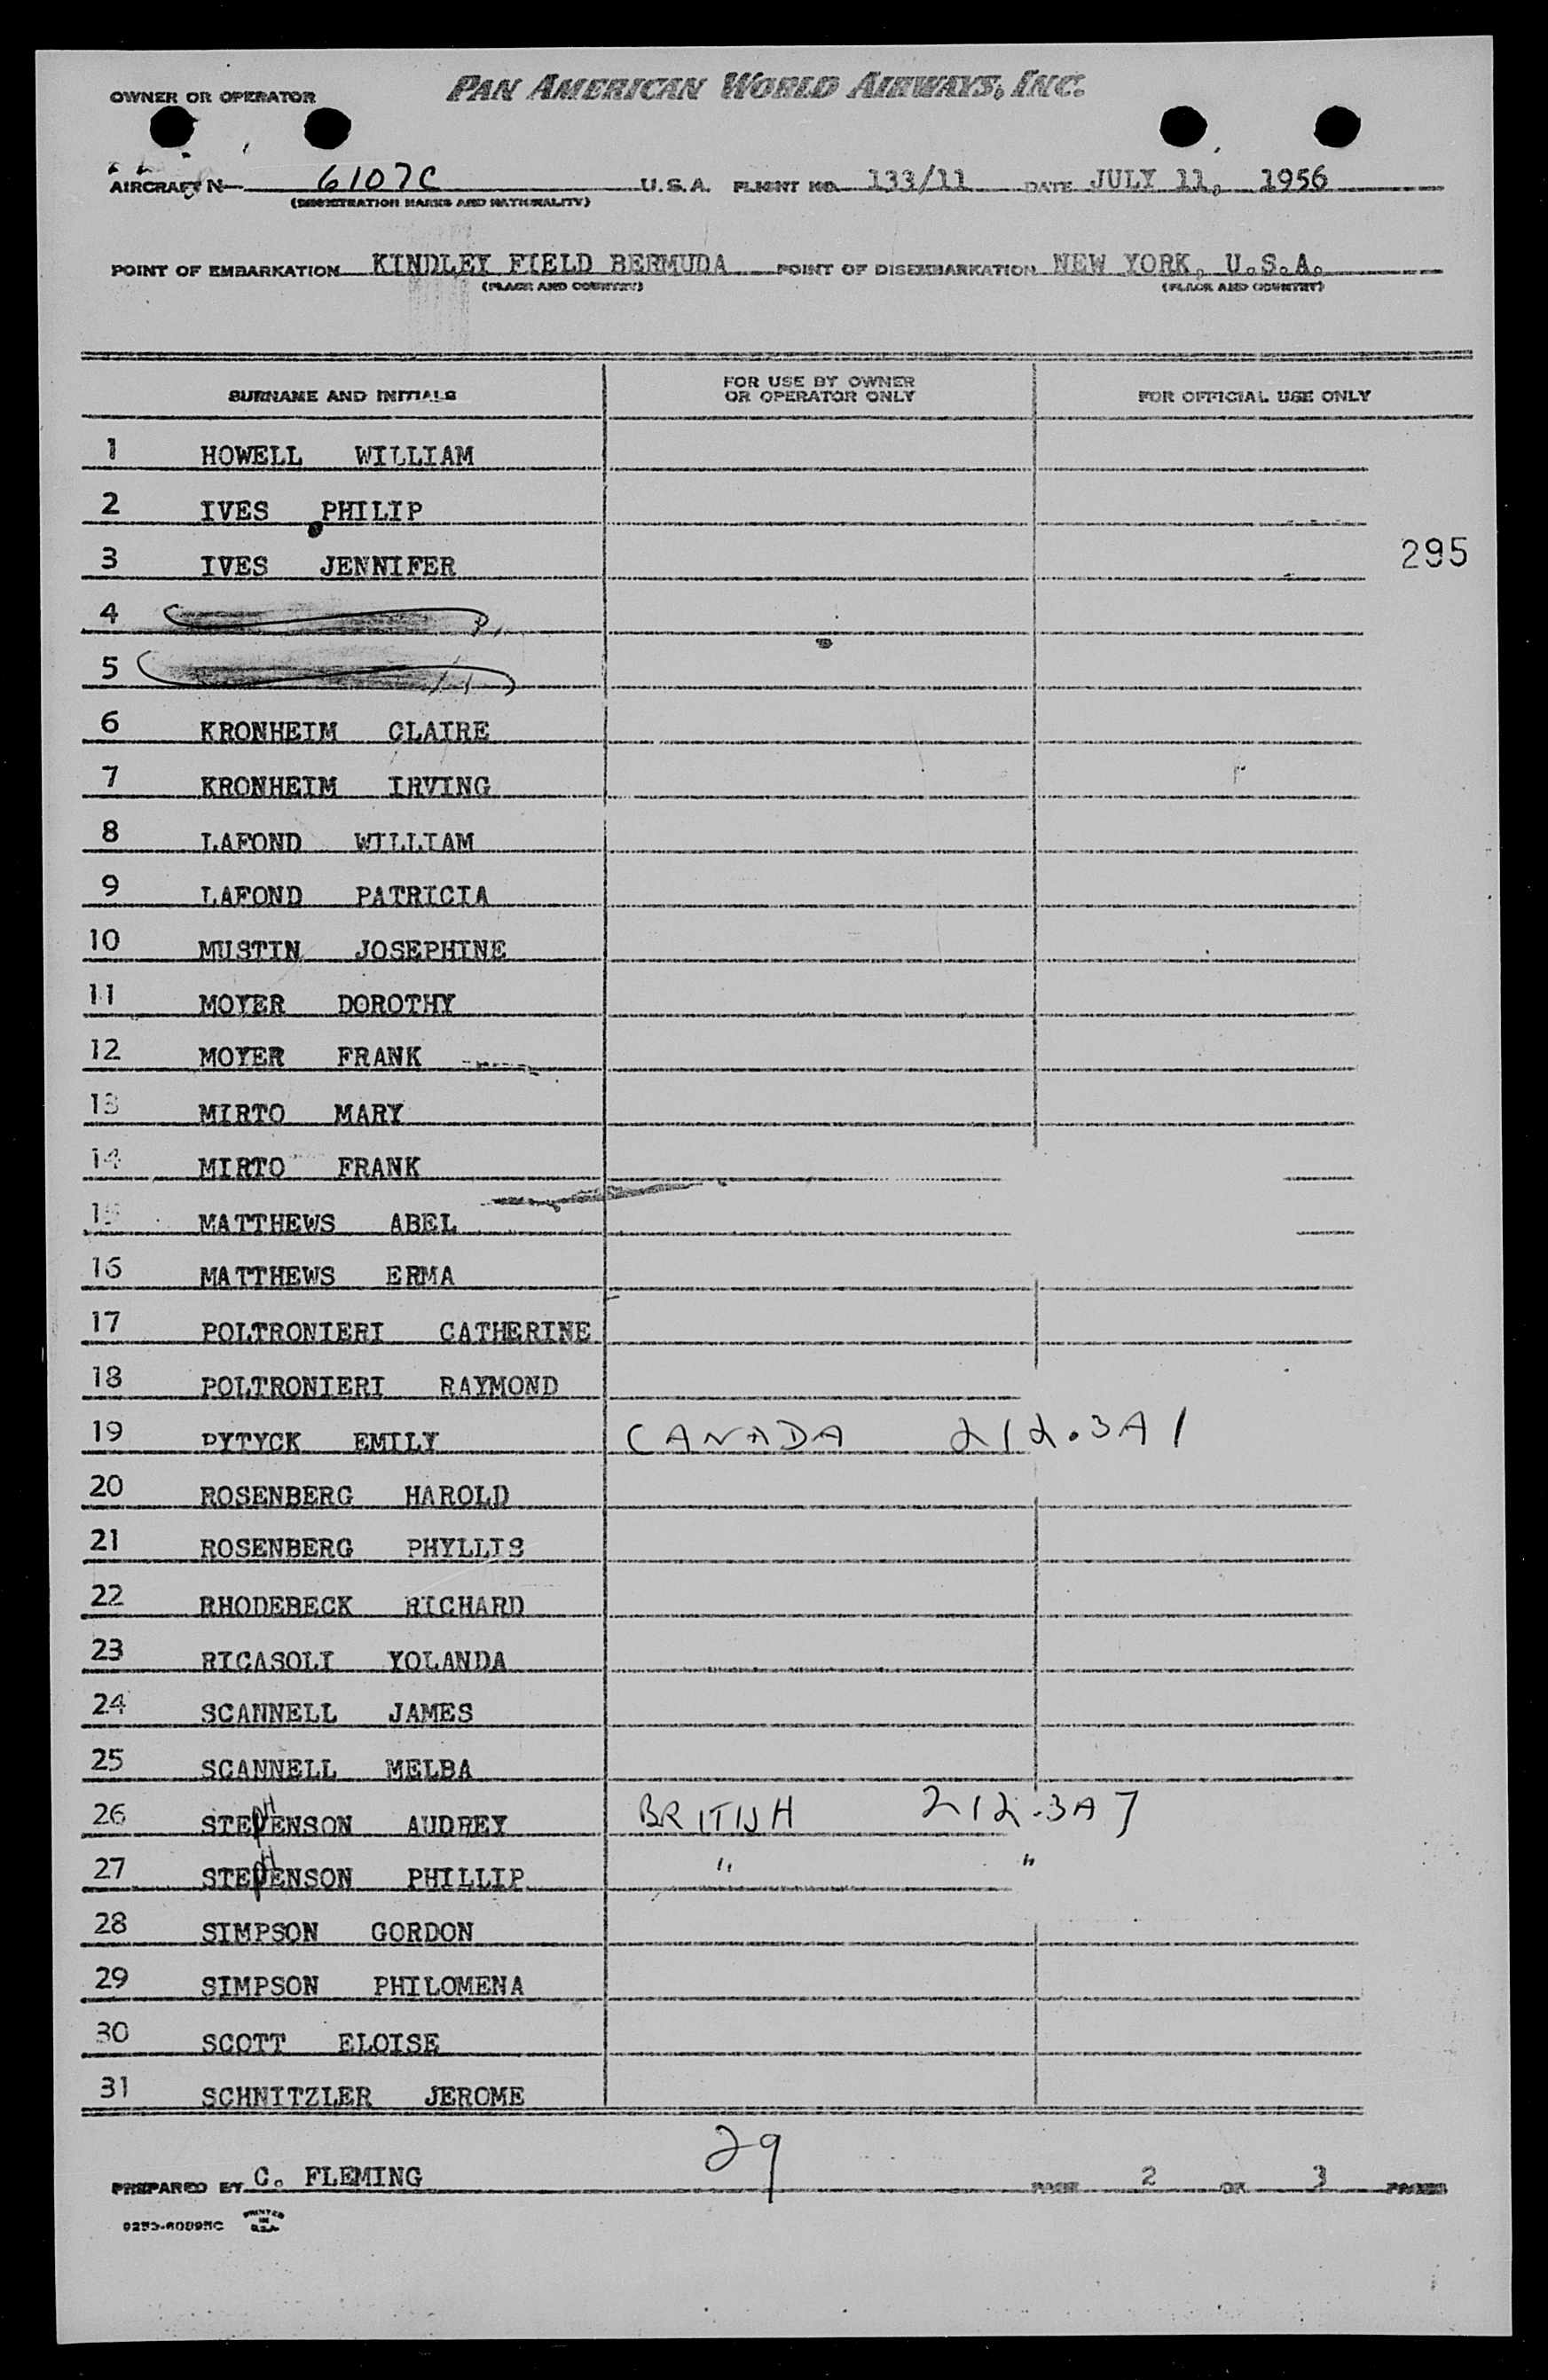 OWNER OR OPERATOR PAN AMERICAN WORLD AIRWAYS, INC.
AIRCRAFT N 6107C U.S.A. FLIGHT NO. 133/11 DATE JULY 11, 1956
(REGISTRATION MARKS AND NATIONALITY)
POINT OF EMBARKATION KINDLEY FIELD BERMUDA POINT OF DISEMBARKATION NEW YORK, U.S.A.
(PLACE AND COUNTRY) (PLACE AND COUNTRY)
SURNAME AND INITIALS FOR USE BY OWNER OR OPERATOR ONLY FOR OFFICIAL USE ONLY
1 HOWELL WILLIAM
2 IVES PHILIP
3 IVES JENNIFER 295
4
5
6 KRONHEIM CLAIRE
7 KRONHEIM IRVING
8 LAFOND WILLIAM
9 LAFOND PATRICIA
10 MUSTIN JOSEPHINE
11 MOYER DOROTHY
12 MOYER FRANK
13 MIRTO MARY
14 MIRTO FRANK
15 MATTHEWS ABEL
16 MATTHEWS ERMA
17 POLTRONIERI CATHERINE
18 POLTRONIERI RAYMOND
19 PYTYCK EMILY CANADA 212.3A1
20 ROSENBERG HAROLD
21 ROSENBERG PHYLLIS
22 RHODEBECK RICHARD
23 RICASOLI YOLANDA
24 SCANNELL JAMES
25 SCANNELL MELBA
26 STEPHENSON AUDREY BRITISH 212.3A7
27 STEPHENSON PHILLIP " "
28 SIMPSON GORDON
29 SIMPSON PHILOMENA
30 SCOTT ELOISE
31 SCHNITZLER JEROME
29
PREPARED BY C. FLEMING PAGE 2 OF 3 PAGES
PRINTED IN U.S.A.